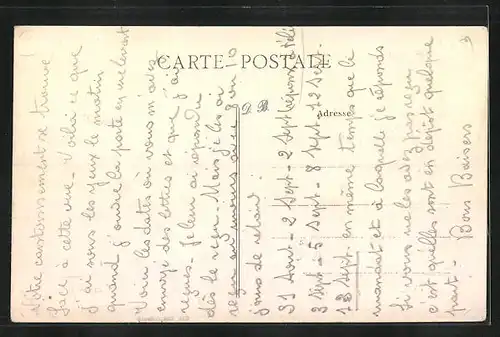 CARTE POSTALE
D.D.
Adresse
Notre cantonnement se trouve
face à cette vue - Voilà ce que
j'ai sous les yeux le matin
quand j'ouvre la porte en me levant
Voici les dates où vous m'avez
envoyé des lettres et que j'ai
reçues - Je leur ai répondu
dès le reçu - Mais je les ai
reçu au moins avec 9 ou 10
jours de retard.
31 Août - 2 Sept - 2 Sept réponse
3 Sept - 5 Sept - 8 Sept - 12 Sept -
13 Sept en même temps que le
mandat et à laquelle je réponds
Si vous ne les avez pas reçu
c'est qu'elles sont en dépôt quelque
part - Bons Baisers